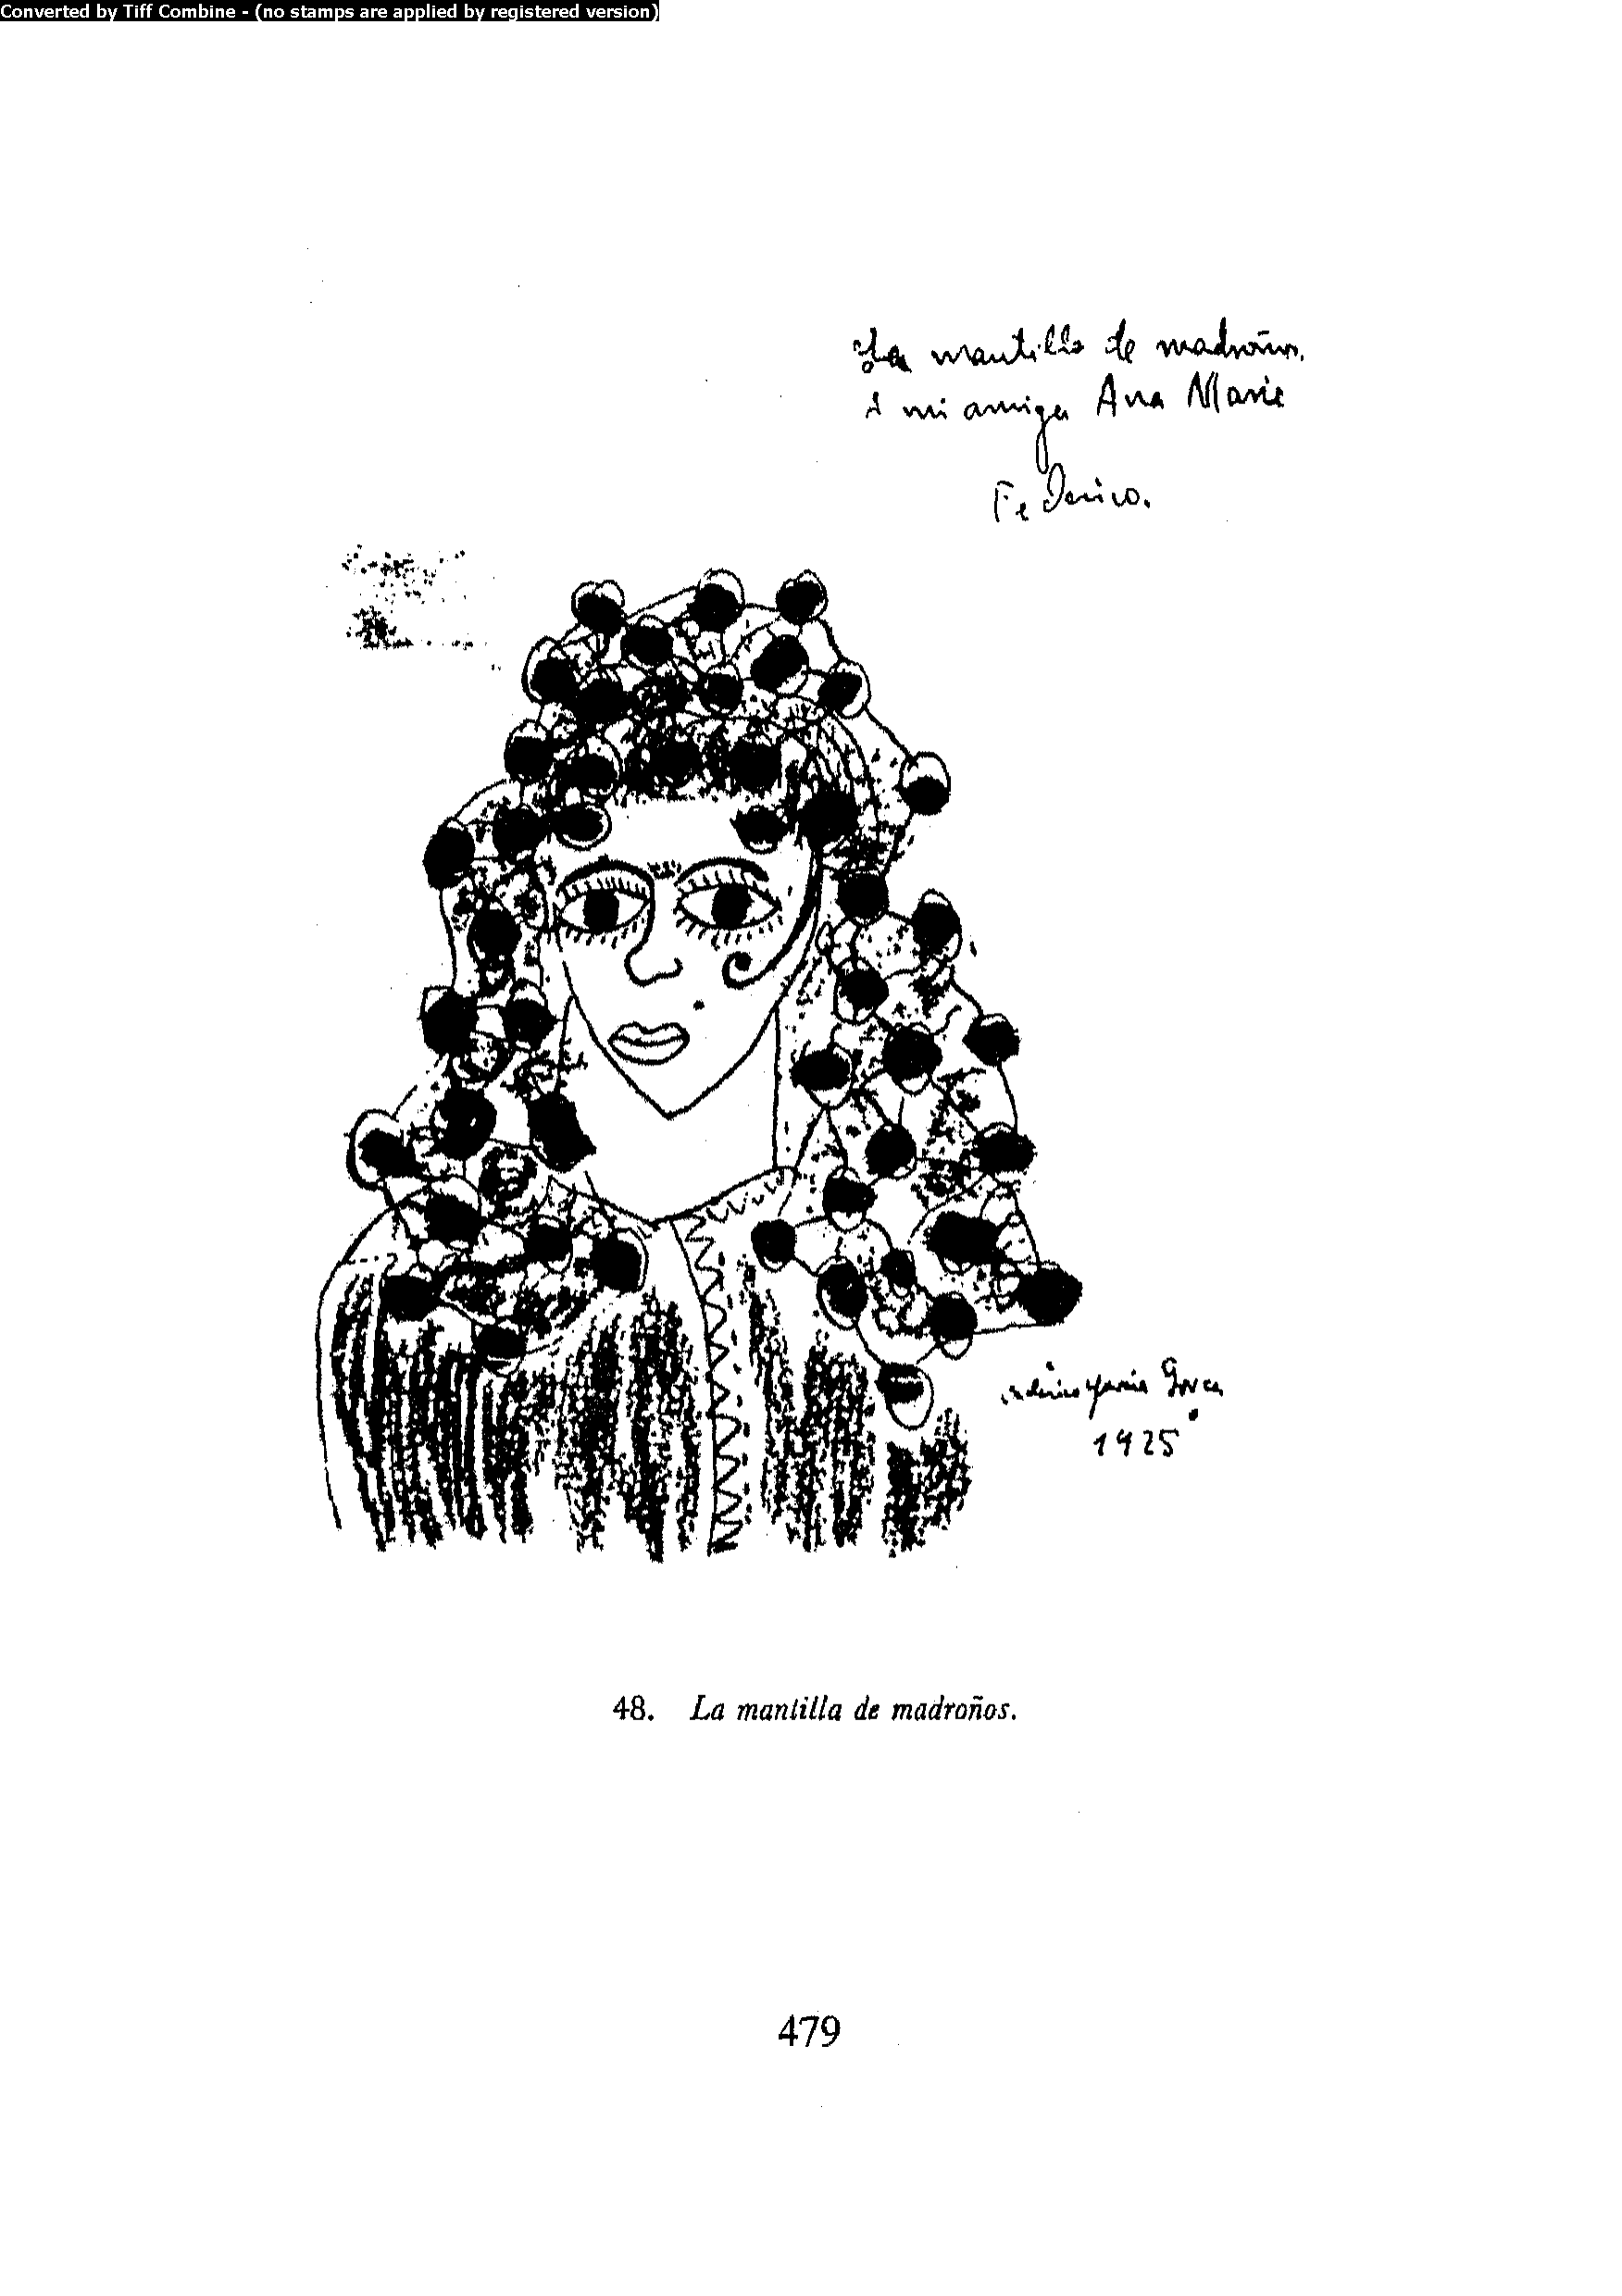 Converted by Tiff Combine - (no stamps are applied by registered version)
La mantilla de madroños.
A mi amiga Ana Maria
Federico.
Federico García Lorca
1925
48. La mantilla de madroños.
479